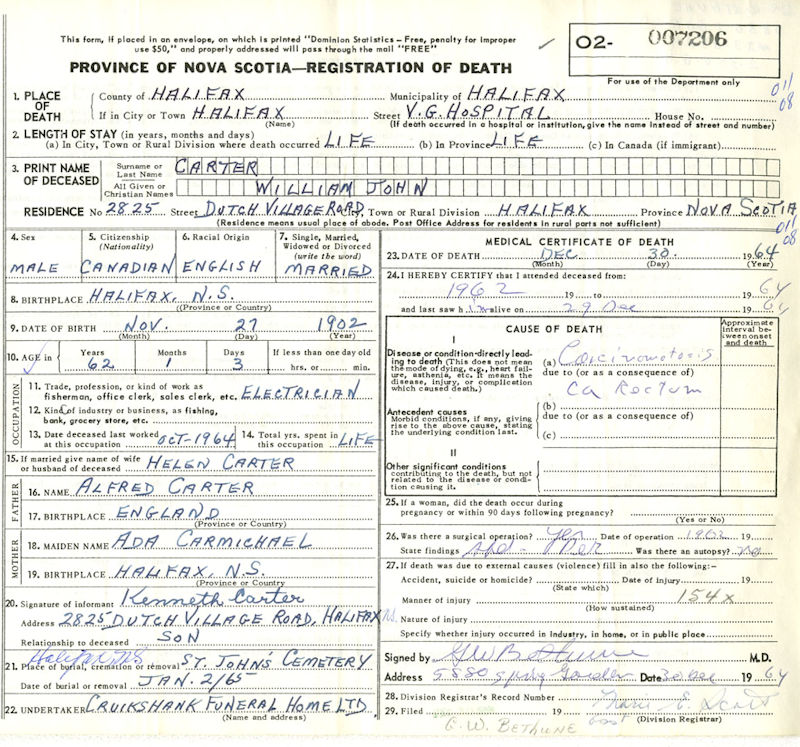 This form, if placed in an envelope, on which is printed "Dominion Statistics – Free, penalty for improper
use $50," and properly addressed will pass through the mail "FREE"
O2- 007206
For use of the Department only
PROVINCE OF NOVA SCOTIA—REGISTRATION OF DEATH
011
08
1. PLACE OF DEATH
County of HALIFAX Municipality of HALIFAX
If in City or Town HALIFAX Street V.G. HOSPITAL House No.
(Name) (If death occurred in a hospital or institution, give the name instead of street and number)
2. LENGTH OF STAY (in years, months and days)
(a) In City, Town or Rural Division where death occurred LIFE (b) In Province LIFE (c) In Canada (if immigrant)
3. PRINT NAME OF DECEASED
Surname or Last Name CARTER
All Given or Christian Names WILLIAM JOHN
RESIDENCE No 2825 Street DUTCH VILLAGE ROAD, Town or Rural Division HALIFAX Province NOVA SCOTIA
(Residence means usual place of abode. Post Office Address for residents in rural parts not sufficient)
011
08
4. Sex MALE
5. Citizenship (Nationality) CANADIAN
6. Racial Origin ENGLISH
7. Single, Married, Widowed or Divorced (write the word) MARRIED
8. BIRTHPLACE HALIFAX, N.S.
(Province or Country)
9. DATE OF BIRTH NOV. 27 1902
(Month) (Day) (Year)
10. AGE in Years 62 Months 1 Days 3 If less than one day old hrs. or min.
OCCUPATION
11. Trade, profession, or kind of work as
fisherman, office clerk, sales clerk, etc. ELECTRICIAN
12. Kind of industry or business, as fishing,
bank, grocery store, etc.
13. Date deceased last worked at this occupation OCT-1964
14. Total yrs. spent in this occupation LIFE
15. If married give name of wife or husband of deceased HELEN CARTER
FATHER
16. NAME ALFRED CARTER
17. BIRTHPLACE ENGLAND
(Province or Country)
MOTHER
18. MAIDEN NAME ADA CARMICHAEL
19. BIRTHPLACE HALIFAX, N.S.
(Province or Country)
20. Signature of informant Kenneth Carter
Address 2825 DUTCH VILLAGE ROAD, HALIFAX N.S.
Relationship to deceased SON
Halifax NS
21. Place of burial, cremation or removal ST. JOHN'S CEMETERY
Date of burial or removal JAN. 2/65
22. UNDERTAKER CRUIKSHANK FUNERAL HOME LTD
(Name and address)
MEDICAL CERTIFICATE OF DEATH
23. DATE OF DEATH DEC 30. 1964
(Month) (Day) (Year)
24. I HEREBY CERTIFY that I attended deceased from:
1962 19 to 1964
and last saw h im alive on 29 Dec 1964
CAUSE OF DEATH
Approximate interval between onset and death
I
Disease or condition directly leading to death (This does not mean
the mode of dying, e.g., heart failure, asthenia, etc. It means the
disease, injury, or complication which caused death.)
(a) Carcinomatosis
due to (or as a consequence of)
Ca Rectum
Antecedent causes
Morbid conditions, if any, giving rise to the above cause, stating the underlying condition last.
(b)
due to (or as a consequence of)
(c)
II
Other significant conditions
contributing to the death, but not related to the disease or condition causing it.
25. If a woman, did the death occur during
pregnancy or within 90 days following pregnancy?
(Yes or No)
26. Was there a surgical operation? Yes Date of operation 1962 19
State findings Was there an autopsy? no
27. If death was due to external causes (violence) fill in also the following:-
Accident, suicide or homicide? Date of injury 19
(State which)
Manner of injury 154X
(How sustained)
Nature of injury
Specify whether injury occurred in industry, in home, or in public place
Signed by GW Bethune M.D.
Address 5880 Spring Garden Date 30 Dec 1964
28. Division Registrar's Record Number
29. Filed 19 E. Scott
(Division Registrar)
G. W. BETHUNE